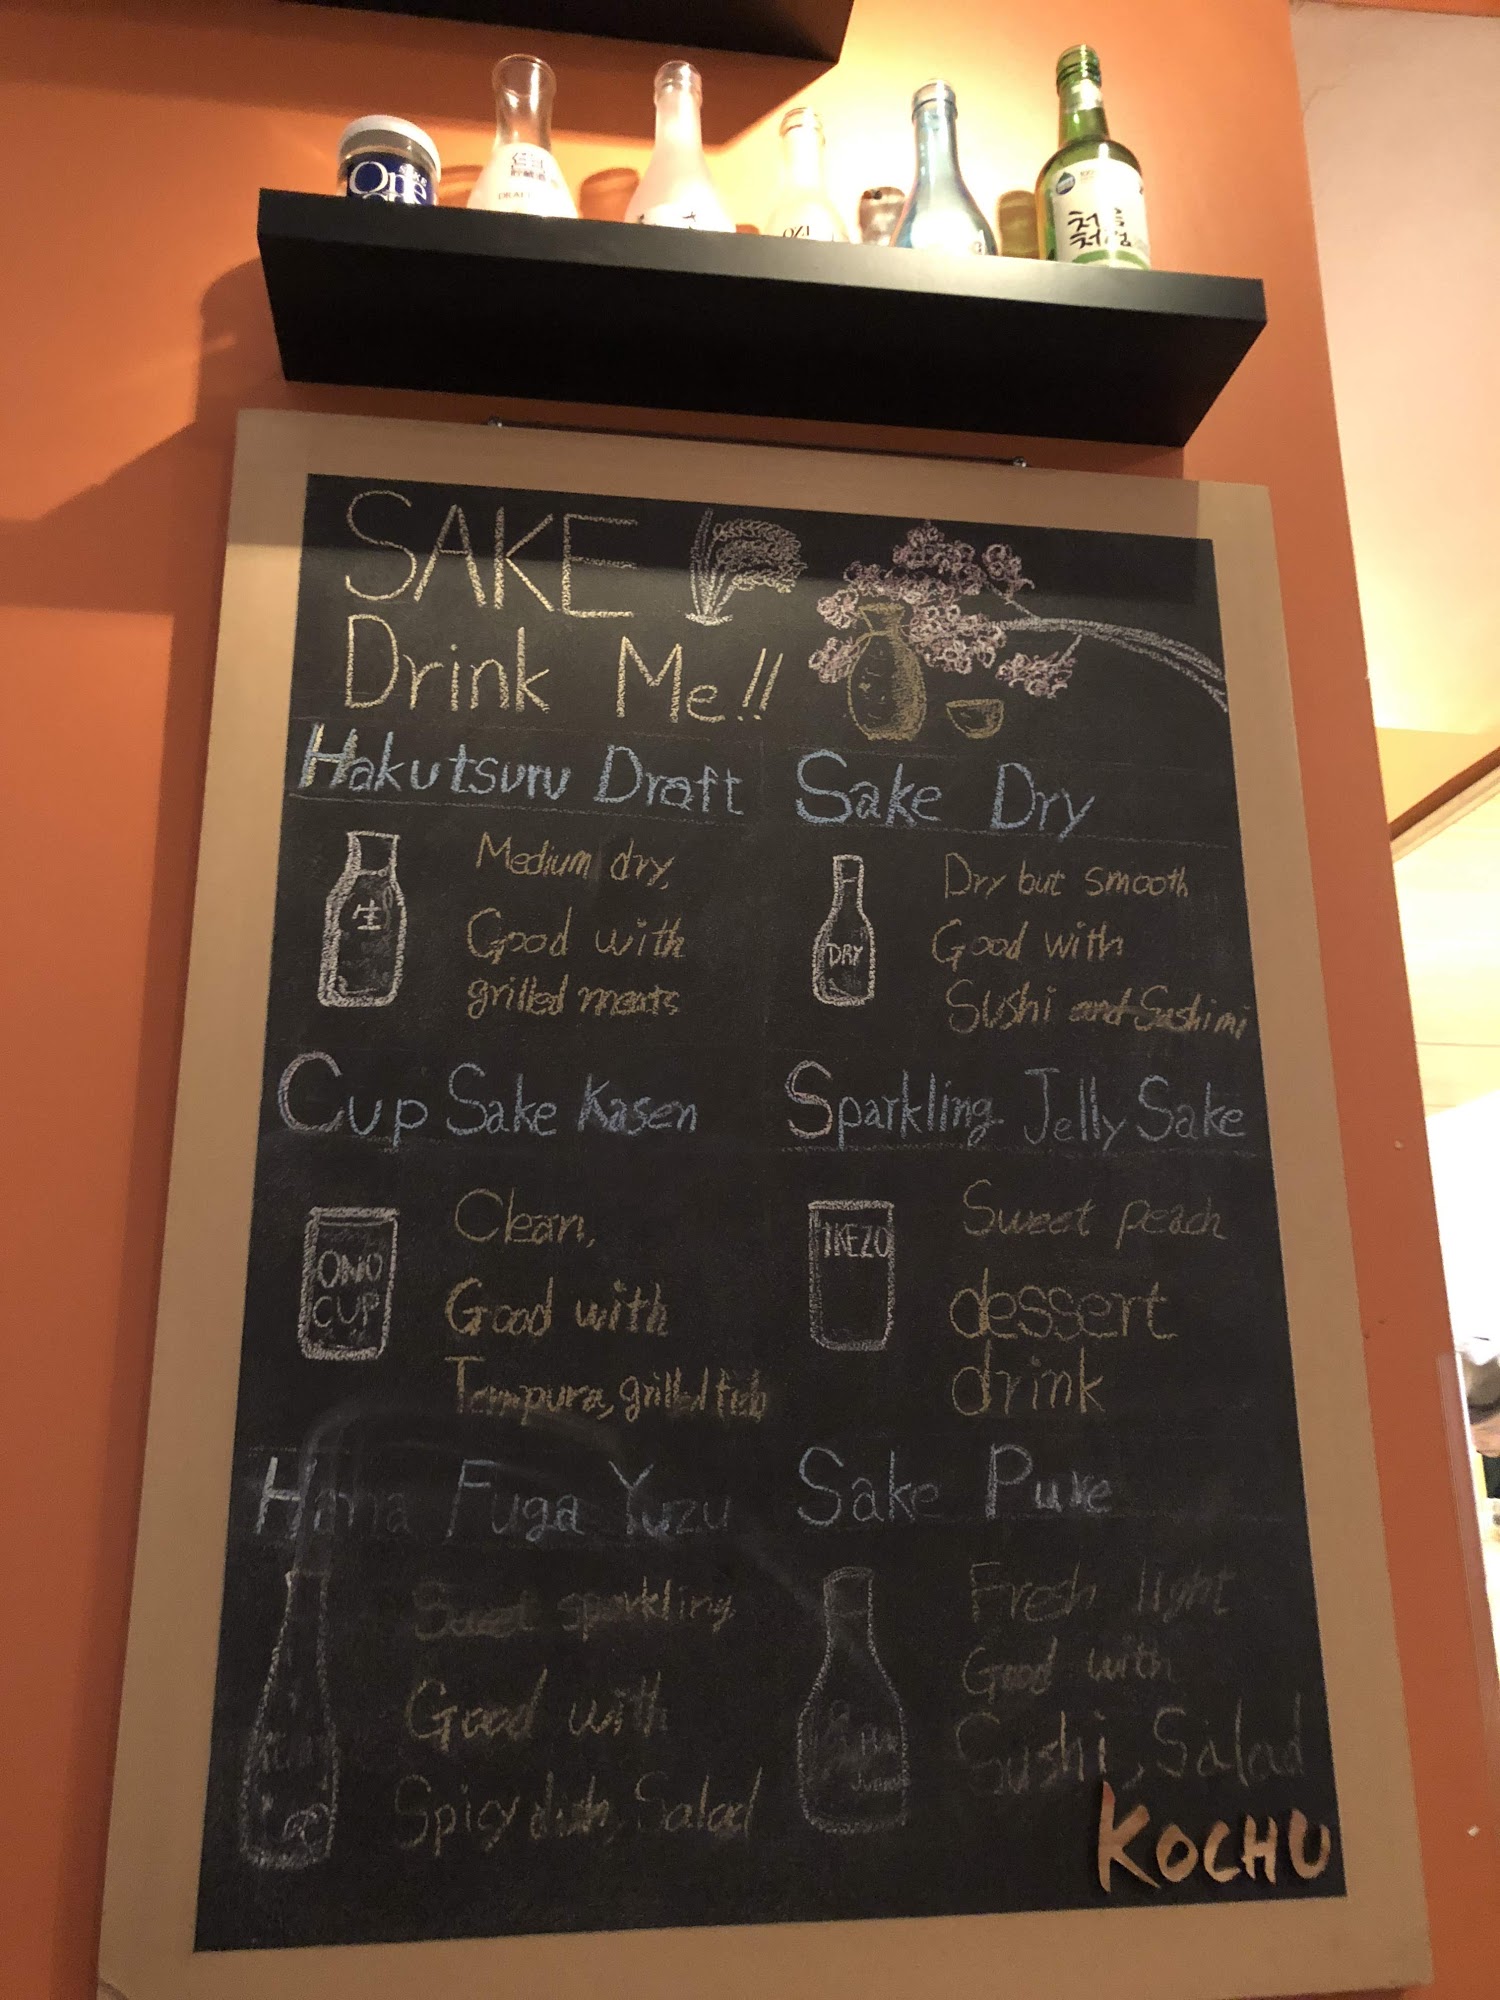 One
DRAFT
OZE
처음
처럼
SAKE
Drink Me!!
Hakutsuru Draft
生
Medium dry,
Good with
grilled meats
Sake Dry
DRY
Dry but smooth
Good with
Sushi and Sashimi
Cup Sake Kasen
ONO
CUP
Clean,
Good with
Tempura, grilled fish
Sparkling Jelly Sake
IKEZO
Sweet peach
dessert
drink
Hana Fuga Yuzu
Sweet sparkling
Good with
Spicy dish, Salad
Sake Pure
Fresh light
Good with
Sushi, Salad
KOCHU